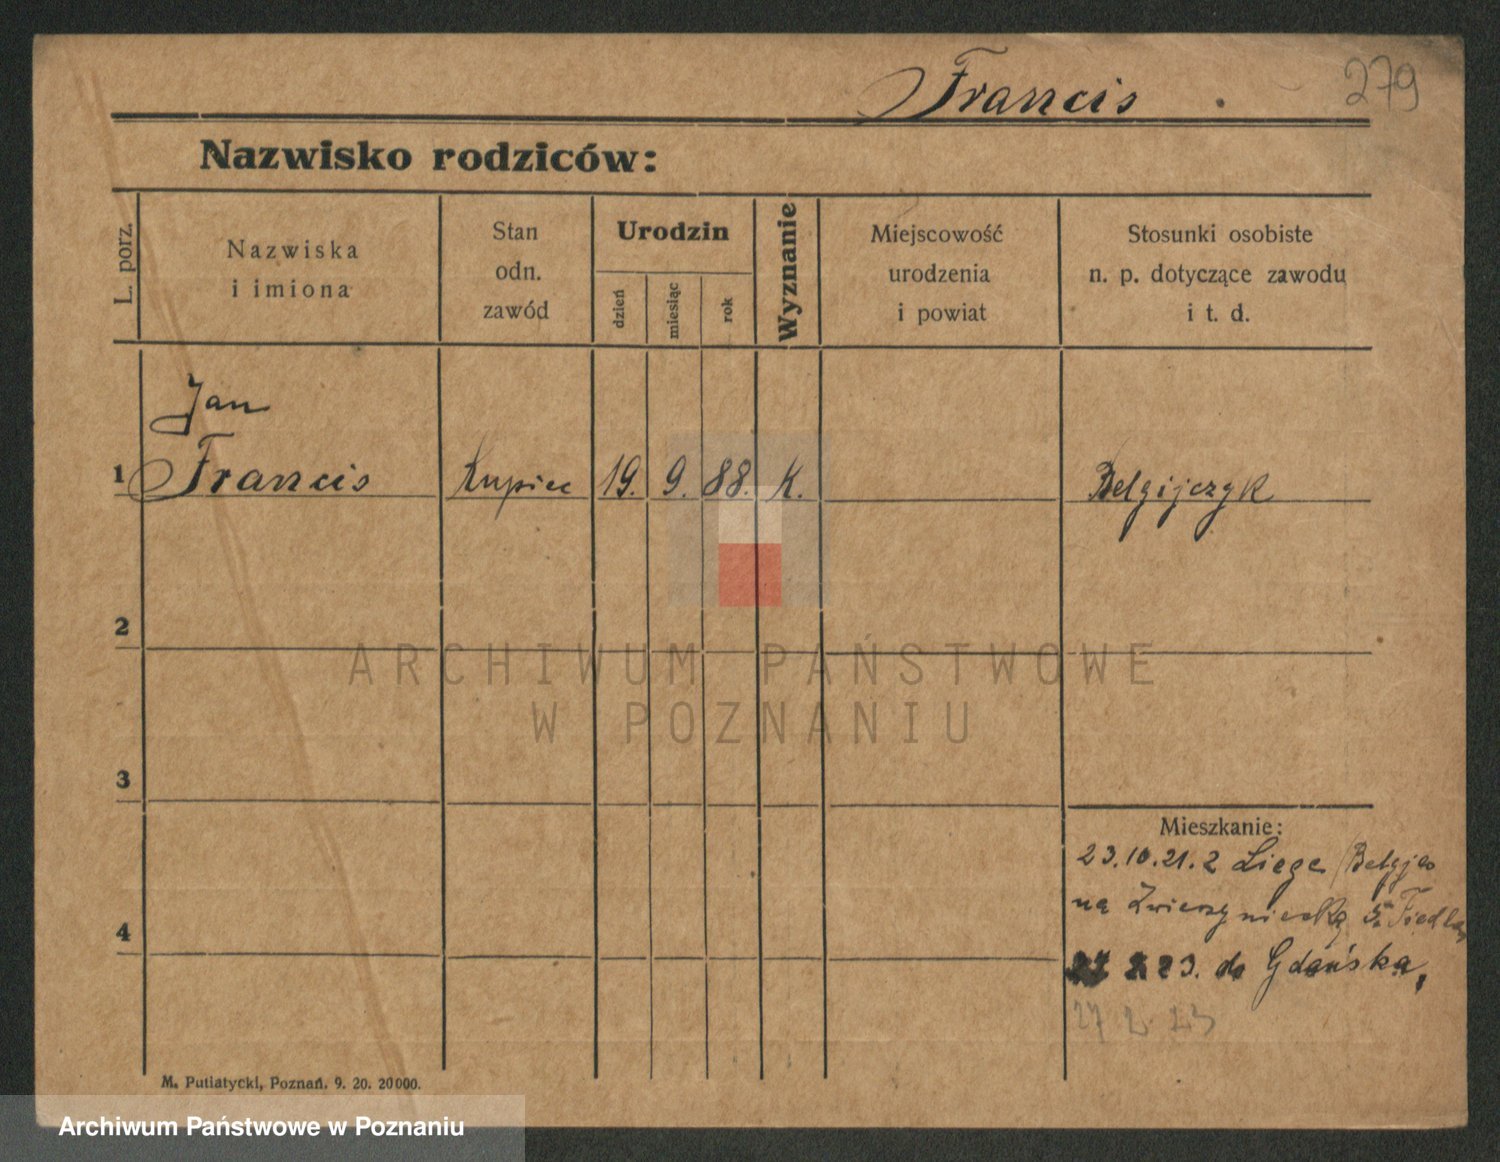 Francis
279
Nazwisko rodziców:
L. porz.
Nazwiska
i imiona
Stan
odn.
zawód
Urodzin
dzień
miesiąc
rok
Wyznanie
Miejscowość
urodzenia
i powiat
Stosunki osobiste
n. p. dotyczące zawodu
i t. d.
Jan
1 Francis Kupiec 19. 9. 88. K. Belgijczyk
2
ARCHIWUM PAŃSTWOWE
W POZNANIU
3
Mieszkanie:
23.10.21. z Liege
na Zwierzyniecką
4
23. do Gdańska,
27 2 23
M. Putiatycki, Poznań. 9. 20. 20000.
Archiwum Państwowe w Poznaniu